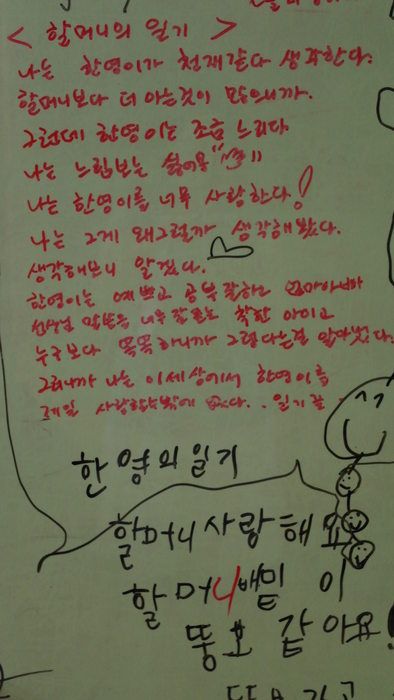 < 할머니의 일기 >
나는 한영이가 천재같다 생각한다.
할머니보다 더 아는것이 많으니까.
그런데 한영이는 조금 느리다
나는 느림보는 싫어용
나는 한영이를 너무 사랑한다!
나는 그게 왜그럴까 생각해봤다.
생각해보니 알겠다.
한영이는 예쁘고 공부 잘하고 엄마아빠
선생님 말씀을 너무 잘 듣는 착한 아이고
누구보다 똑똑하니까 그렇다는걸 알아냈다.
그러니까 나는 이세상에서 한영이를
제일 사랑할수밖에 없다.. 일기 끝
한영의 일기
할머니 사랑해요
할머니 배밑이
뚱호 같아요!